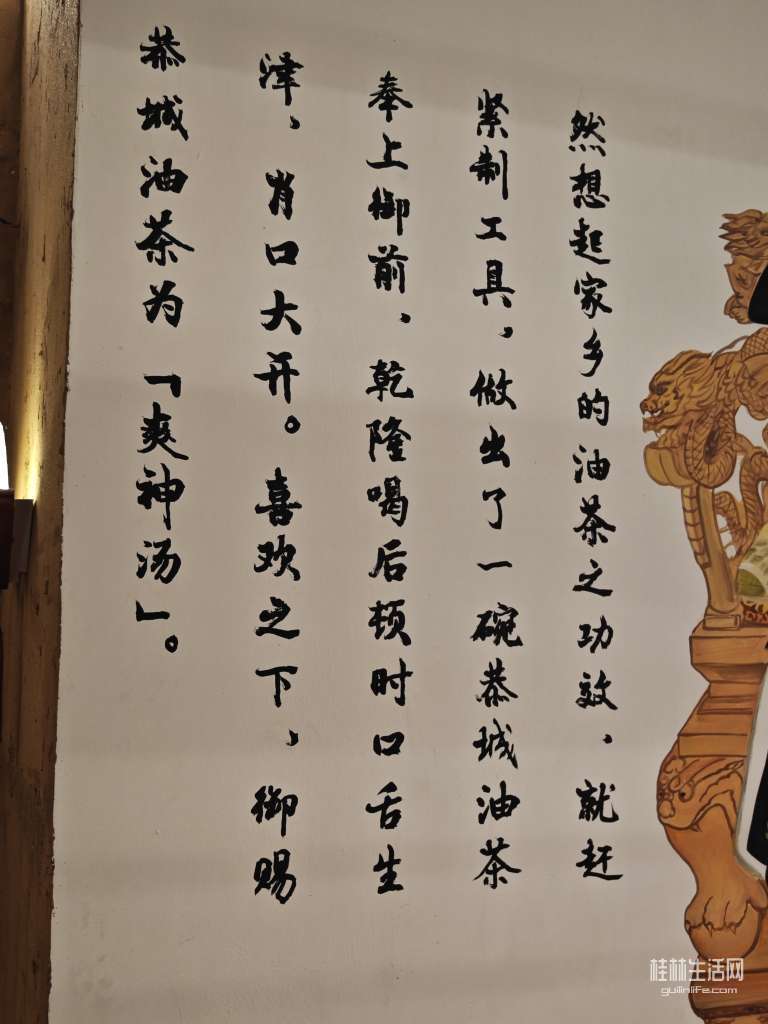 然想起家乡的油茶之功效、就赶
紧制工具，做出了一碗恭城油茶
奉上御前、乾隆喝后顿时口舌生
泽、胃口大开。喜欢之下、御赐
恭城油茶为「爽神汤」。
桂林生活网
guilinlife.com